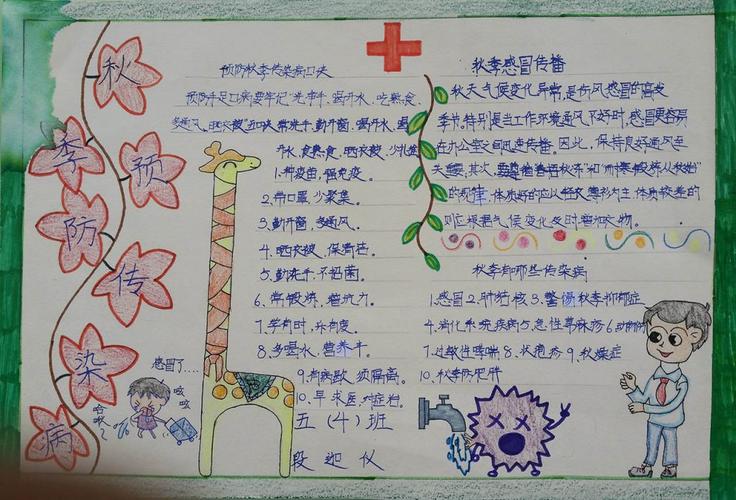 秋
季
预
防
传
染
病
预防秋季传染病口决
预防手足口病要牢记"洗净手、喝开水、吃熟食、
多通风、晒衣被"五口决 常洗手、勤开窗、喝开水、喝
开水、食熟食、晒衣被、少扎堆
1.种疫苗,强免疫。
2.带口罩,少聚集。
3.勤开窗,多通风。
4.晒衣被,保清洁。
5.勤洗手,不沾菌。
6.常锻炼,增抗力。
7.学有时,乐有度。
8.多喝水,营养丰。
9.有病歇,须隔离。
10.早求医,对症治。
五(4)班
段迦仪
感冒了....
咳咳
哈欠~
秋季感冒传播
秋天气候变化异常,是伤风感冒的高发
季节,特别是当工作环境通风不好时,感冒更容易
在办公室之间迅速传播。因此,保持良好通风至
关重要。其次,
秋冻"和"耐寒锻炼从秋始"
的规律,体质好的应以
为主,体质较差的
则应根据气候变化及时增加衣物。
秋季有哪些传染病
1.感冒 2.肺结核 3.警惕秋季抑郁症
4.消化系统疾病 5.急性荨麻疹 6.
7.过敏性哮喘 8.状疱疹 9.秋燥症
10.秋季防肥胖